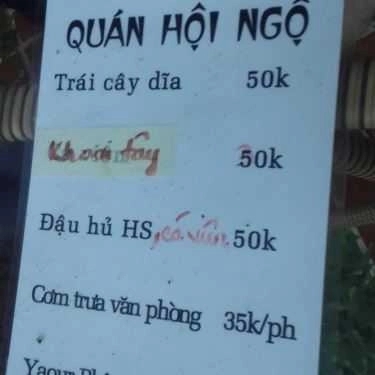 QUÁN HỘI NGỘ
Trái cây dĩa 50k
Khoai tây 30k
Đậu hủ HS, cá viên 50k
Cơm trưa văn phòng 35k/ph
Yaour